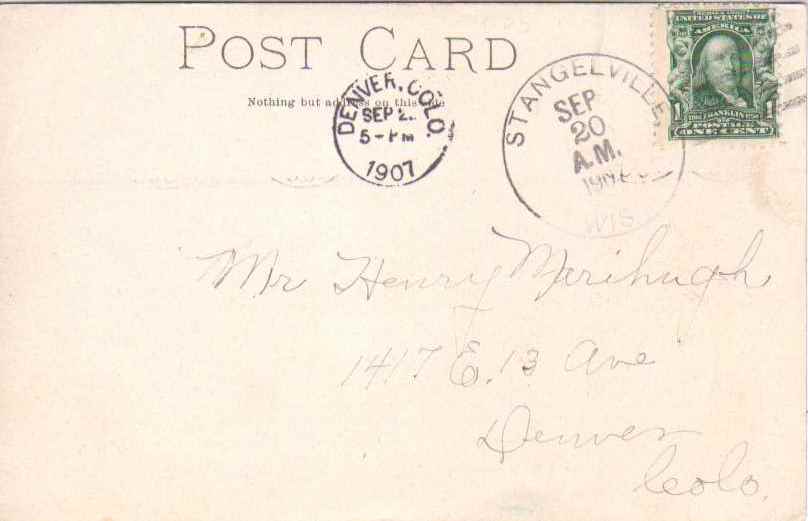 POST CARD
Nothing but address on this side
DENVER, COLO.
SEP 2
5-PM
1907
STANGELVILLE
SEP
20
A.M.
190
WIS
UNITED STATES OF
AMERICA
1
FRANKLIN
POSTAGE
ONE CENT
Mr Henry Marihugh
1417 E. 13 Ave
Denver
Colo.